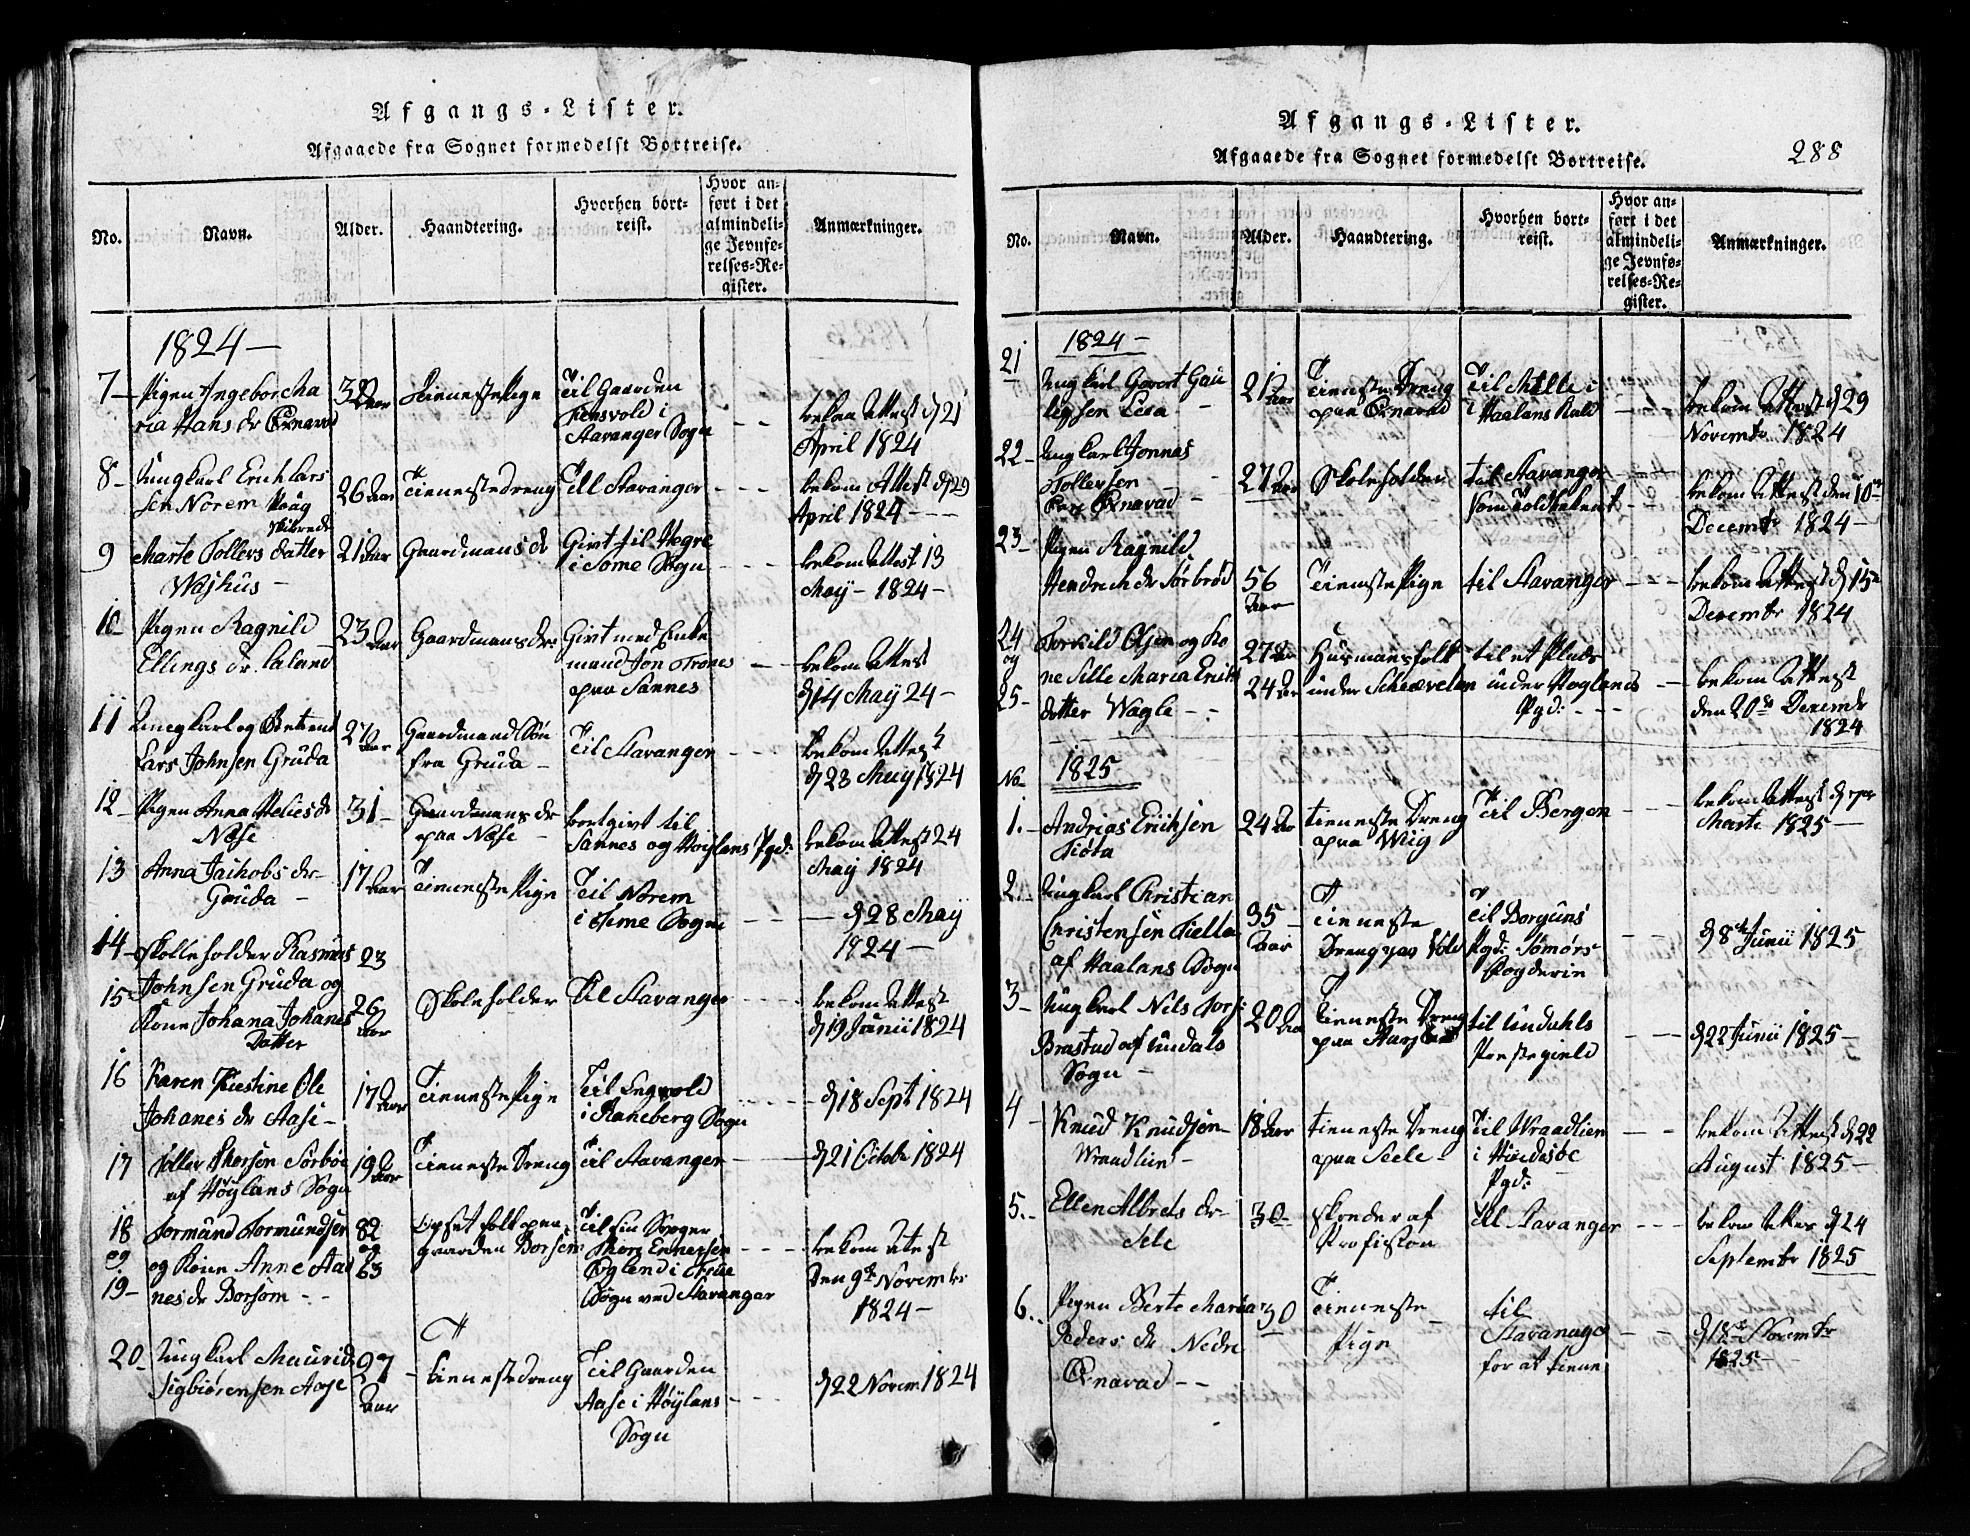 Afgangs-Lister.
Afgaaede fra Sognet formedelst Bortreise.
No.
Navn.
Alder.
Haandtering.
Hvorhen bort-
reist.
Hvor an-
ført i det
almindeli-
ge Jevnfø-
relses-Re-
gister.
Anmærkninger.
1824 —
7 — Pigen Ingebor Ma
ria Hans dr
32 Aar
Tieneste Pige
Til Gaarden
i
Stavanger Sogn
bekom Attest d 21
April 1824
8 — Ungkarl Erich Lars
sen Norem
26 Aar
Tienestedreng
Till Stavanger
bekom Attest d 29
April 1824 —
9 Marte Tollevs datter
21 Aar
Gaardmans d
Givt til
i Sogn
bekom Attest 13
May — 1824 —
10 Pigen Ragnild
Ellings dr. Laland
23 Aar
Gaardmans dr:
Givt med Enke
mand Jon
paa Sannes
bekom Attest
d 14 May 24 —
11 Ungkarl og
Lars Johnsen Gruda
27 Aar
Gaardmand Søn
fra Gruda —
Til Stavanger
bekom Attest
d 23 May 1824
12 — Pigen Anna dr
Næse
31 —
Gaardmans dr
paa Næse —
bortgivt til
Sannes og Høylans Pgd:
bekom Attest 24
May 1824
13 Anna Jaikobs dr
Gruda —
17 Aar
Tieneste Pige
Til Norem
i Time Sogn
— d 28 May
1824 —
14 — Skolleholder Rasmus
Johnsen Gruda og
23
15 Kone Johana Johanes
Datter
26
Aar
Skoleholder
Til Stavanger
bekom Attest
d 19 Junii 1824
16 Karen Kiestine Ole
Johanes dr Aase —
17 Aar
Tieneste Pige
Til
i Haneberg Sogn
d 18 Sept 1824
17 Toller Thorsen Sørbøe
af Høylans Sogn
19 Aar
Tieneste Dreng
Til Stavanger
d 21 Octobr 1824
18 Tormund Tormundsen
og og Kone Anne Aad
19 — nes dr Borsøm —
82
og
63
folk paa
gaarden Borsøm
Til sin
Enersen
i
Sogn ved Stavanger
bekom Atest
Den 9de Novembr
1824 —
20 Ungkarl Maurids
Sigbiørensen Aase
27
Aar
Tienestedreng
Til Gaarden
Aase i Høylans
Sogn
d 22 Novem 1824
Afgangs-Lister.
288
Afgaaede fra Sognet formedelst Bortreise.
No.
Navn.
Alder.
Haandtering.
Hvorhen bort-
reist.
Hvor an-
ført i det
almindeli-
ge Jevnfø-
relses-Re-
gister.
Anmærkninger.
1824 —
21
Ungkarl Govert Gau
21 Aar
Tieneste Dreng
paa
Til i
Haalans
bekom Attest d 29
Novembr 1824
22 — Ungkarl Jonnas
Tollevsen
27 Aar
Skoleholder
til Stavanger
som
bekom Attest den 10de
Decembr 1824 —
23 — Pigen Ragnild
Hendrich dr Sørbrød
56
Aar
Tieneste Pige
til Stavanger
bekom Attest d 15de
Decembr 1824
24 Torkild Olsen og Ko
og ne Sille Maria Erichs
25 — datter Wagle —
27 Aar
24 Aar
Husmansfolk
under Schiævelen
til et Plads
under Høglands
Pgd:
bekom Attest
den 20de Decembr
1824
No.
1825
1. — Andreas Erichsen
24 Aar
tieneste Dreng
paa Wiig
Til Bergen
bekom Attest d
Marti 1825 —
2. Ungkarl Christian
Christensen
af Haalans Sogn
35
Aar
Tieneste
Dreng paa Vold
Til Borguns
Pgd: Sømørs
Fogderie
d 8de Junii 1825
3 — Ungkarl Nils
Brastad af Undals
Sogn —
20 Aar
Tieneste Dreng
paa
til Undahls
Prestegield
d 22 Junii 1825 —
4 — Knud Knudsen
Wraadlien —
18 Aar
tieneste Dreng
paa Seele —
Til Wraadlien
i
Pgd:
bekom Attest d 22
August 1825 —
5. — Ellen Albrets dr
Sele
30
skreder af
Profession
til Stavanger
bekom Attes d 24
Septembr 1825
6. Pigen Berte Maria
Peders dr Nedre
30
Tieneste
Pige
til
Stavanger
for at tiene
d 18de Novembr
1825 —